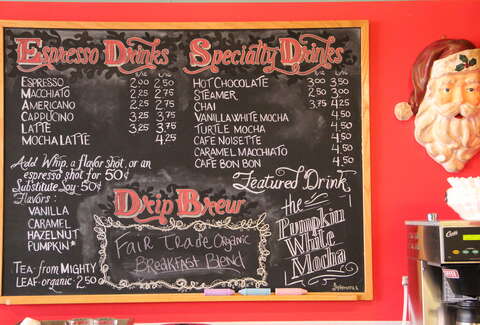 Espresso Drinks
12oz 16oz
ESPRESSO 2.00 2.50
MACCHIATO 2.25 2.75
AMERICANO 2.25 2.75
CAPPUCINO 3.25 3.75
LATTE 3.25 3.75
MOCHA LATTE 4.25
Add Whip, a flavor shot, or an
espresso shot for 50¢
Substitute Soy: 50¢
Flavors:
VANILLA
CARAMEL
HAZELNUT
PUMPKIN*
TEA - from MIGHTY
LEAF - organic - 2.50
Specialty Drinks
12oz 16oz
HOT CHOCOLATE 3.00 3.50
STEAMER 2.50
CHAI 3.75 4.25
VANILLA WHITE MOCHA 4.50
TURTLE MOCHA 4.50
CAFE NOISETTE 4.50
CARAMEL MACCHIATO 4.50
CAFE BON BON 4.50
Featured Drink
the
Pumpkin
White
Mocha
Drip Brew
FAIR TRADE ORGANIC
BREAKFAST BLEND